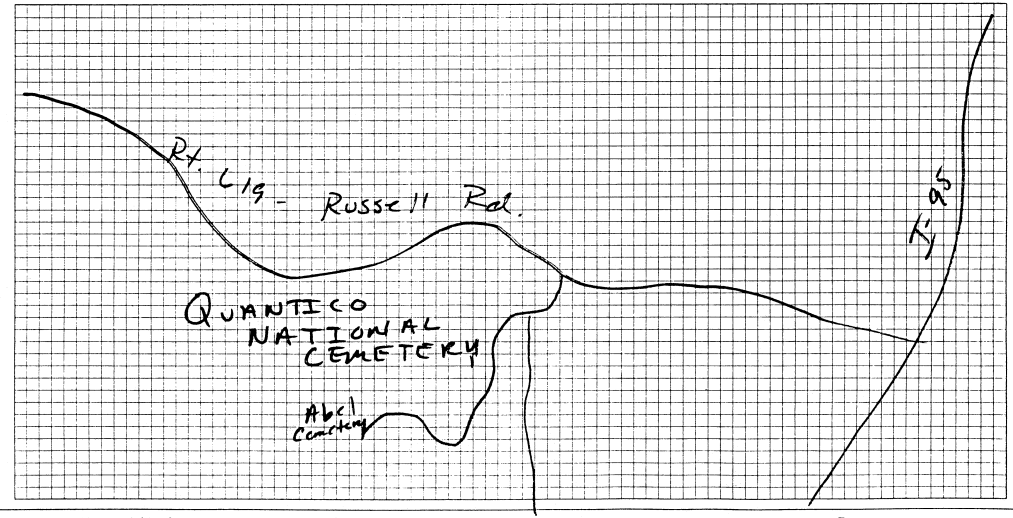 Rt. 619 - Russell Rd.
I 95
QUANTICO
NATIONAL
CEMETERY
Abel
Cemetery